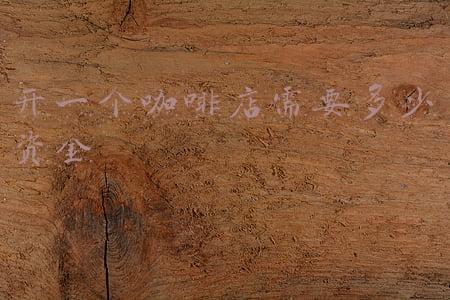 开一个咖啡店需要多少
资金